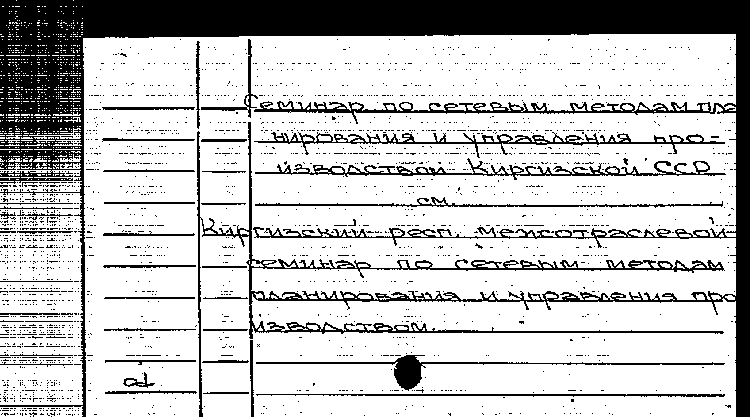 Семинар по сетевым методам пла
нирования и управления про=
изводством Киргизской ССР
см.
Киргизский респ. межотраслевой
семинар по сетевым методам
планирования и управления про
изводством.